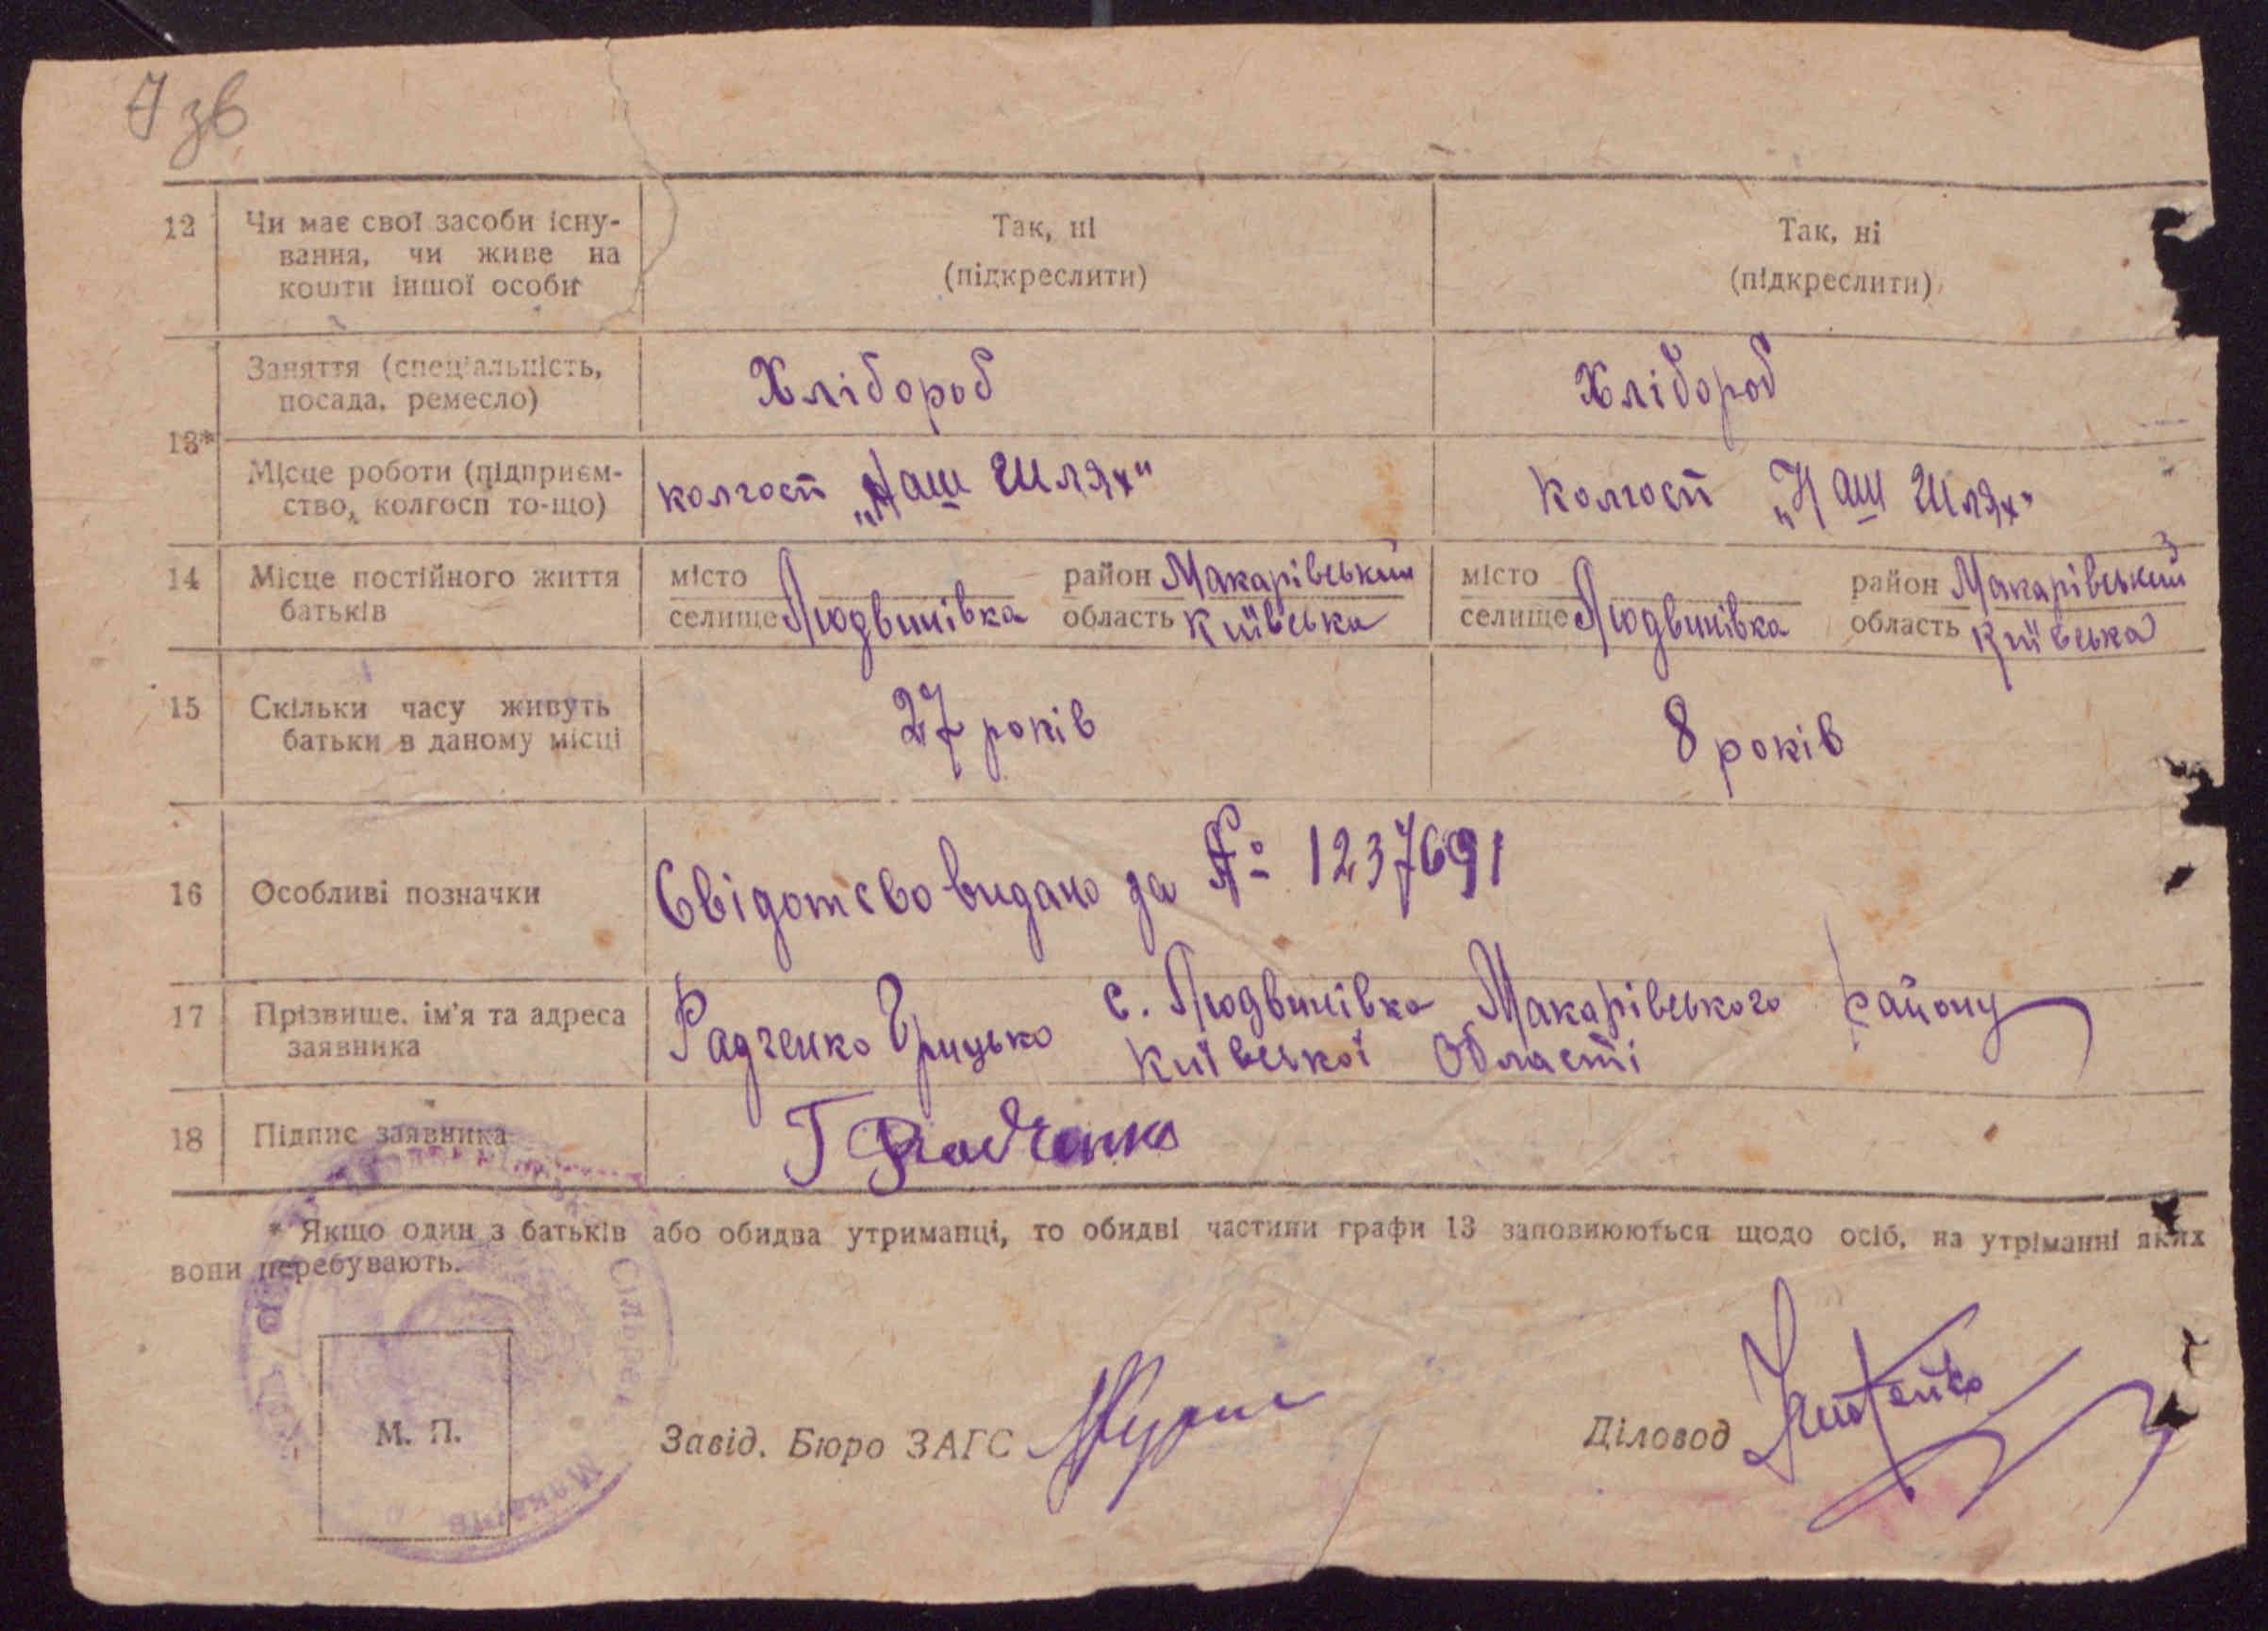 7 зв
12 Чи має свої засоби існу-
вання, чи живе на
кошти іншої особи
Так, ні
(підкреслити)
Так, ні
(підкреслити)
13*
Заняття (спеціальність,
посада, ремесло)
Хлібороб
Хлібороб
Місце роботи (підприєм-
ство, колгосп то-що)
колгосп „Наш Шлях"
колгосп „Наш Шлях"
14 Місце постійного життя
батьків
місто
селище Людвинівка
район Макарівський
область Київська
місто
селище Людвинівка
район Макарівський
область Київська
15 Скільки часу живуть
батьки в даному місці
27 років
8 років
16 Особливі позначки
Свідотсво видано за № 1237691
17 Прізвище, ім'я та адреса
заявника
Радченко Грицько с. Людвинівка Макарівського району
Київської області
18 Підпис заявника
Г Радченко
* Якщо один з батьків або обидва утриманці, то обидві частини графи 13 заповнюються щодо осіб, на утріманні яких
вони перебувають.
М. П.
Завід. Бюро ЗАГС
Діловод